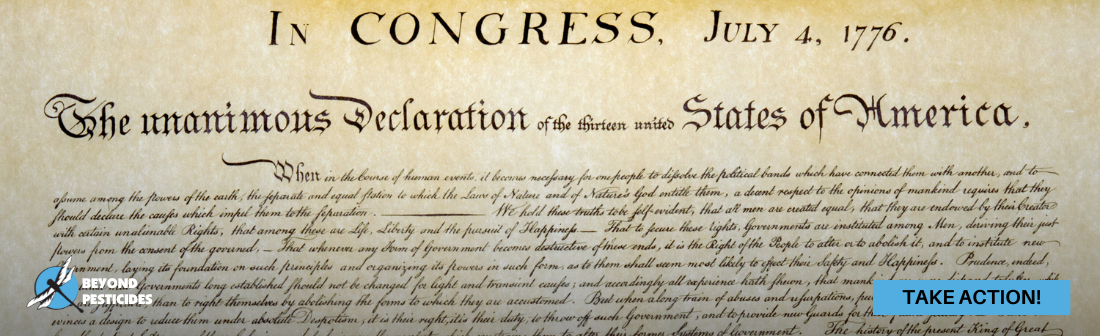 In CONGRESS, July 4, 1776.
The unanimous Declaration of the thirteen united States of America,
When in the Course of human events, it becomes necessary for one people to dissolve the political bands which have connected them with another, and to
assume among the powers of the earth, the separate and equal station to which the Laws of Nature and of Nature's God entitle them, a decent respect to the opinions of mankind requires that they
should declare the causes which impel them to the separation. We hold these truths to be self-evident, that all men are created equal, that they are endowed by their Creator
with certain unalienable Rights, that among these are Life, Liberty and the pursuit of Happiness.— That to secure these rights, Governments are instituted among Men, deriving their just
powers from the consent of the governed,— That whenever any Form of Government becomes destructive of these ends, it is the Right of the People to alter or to abolish it, and to institute new
laying its foundation on such principles and organizing its powers in such form, as to them shall seem most likely to effect their Safety and Happiness. Prudence, indeed,
Governments long established should not be changed for light and transient causes; and accordingly all experience hath shewn, that
than to right themselves by abolishing the forms to which they are accustomed. But when a long train of abuses and usurpations,
evinces a design to reduce them under absolute Despotism, it is their right, it is their duty, to throw off such Government, and to provide new Guards for
The history of the present King of Great
BEYOND
PESTICIDES
TAKE ACTION!